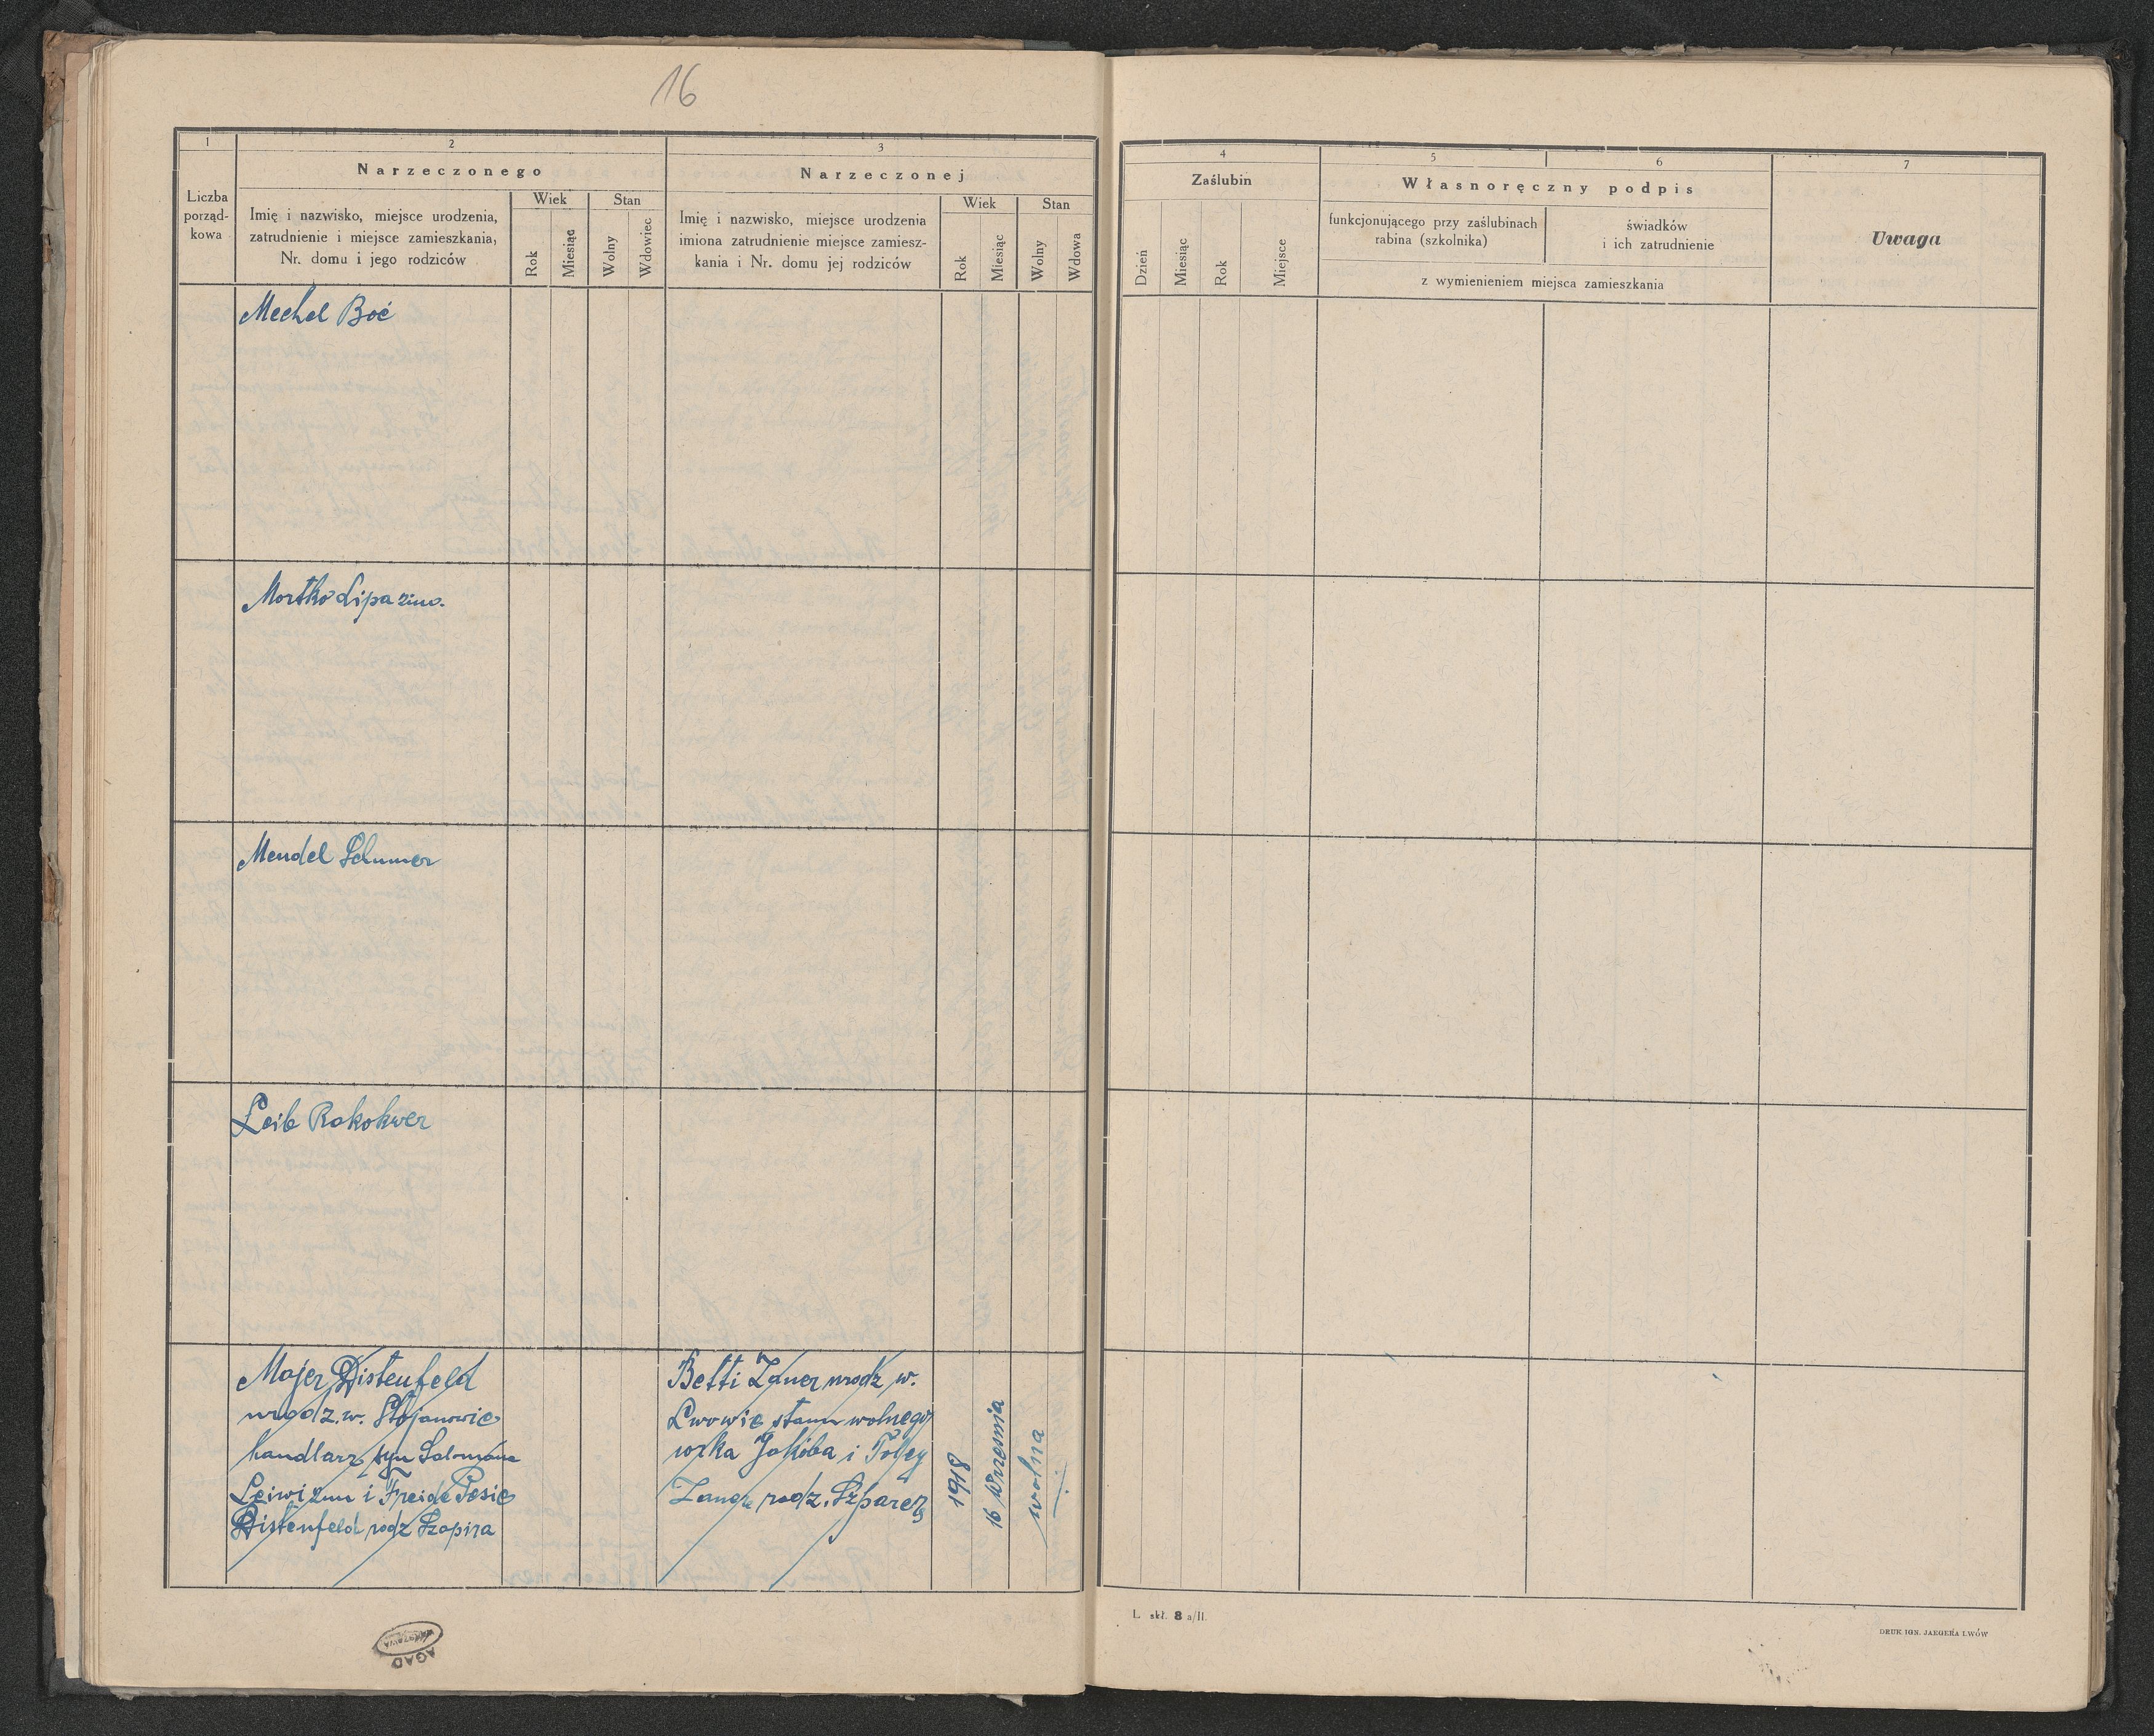 16
1
2
3
Liczba
porząd-
kowa
Narzeczonego
Imię i nazwisko, miejsce urodzenia,
zatrudnienie i miejsce zamieszkania,
Nr. domu i jego rodziców
Wiek
Stan
Rok
Miesiąc
Wolny
Wdowiec
Narzeczonej
Imię i nazwisko, miejsce urodzenia
imiona zatrudnienie miejsce zamiesz-
kania i Nr. domu jej rodziców
Wiek
Stan
Rok
Miesiąc
Wolny
Wdowa
Mechel Boć
Mortko Lipa
Mendel Schumer
Leib Rokokwer
Majer Distenfeld
urodz. w. Stojanowie
handlarz syn Salomona
i Freide Pesie
Distenfeld rodz Szapira
Betti Zauer urodz w.
Lwowie stanu wolnego
Jakóba i
rodz.
1918
16 września
wolna
AGAD
WARSZAWA
4
5
6
7
Zaślubin
Dzień
Miesiąc
Rok
Miejsce
Własnoręczny podpis
funkcjonującego przy zaślubinach
rabina (szkolnika)
świadków
i ich zatrudnienie
z wymienieniem miejsca zamieszkania
Uwaga
L. skł. 8 a/II.
DRUK IGN. JAEGERA LWÓW